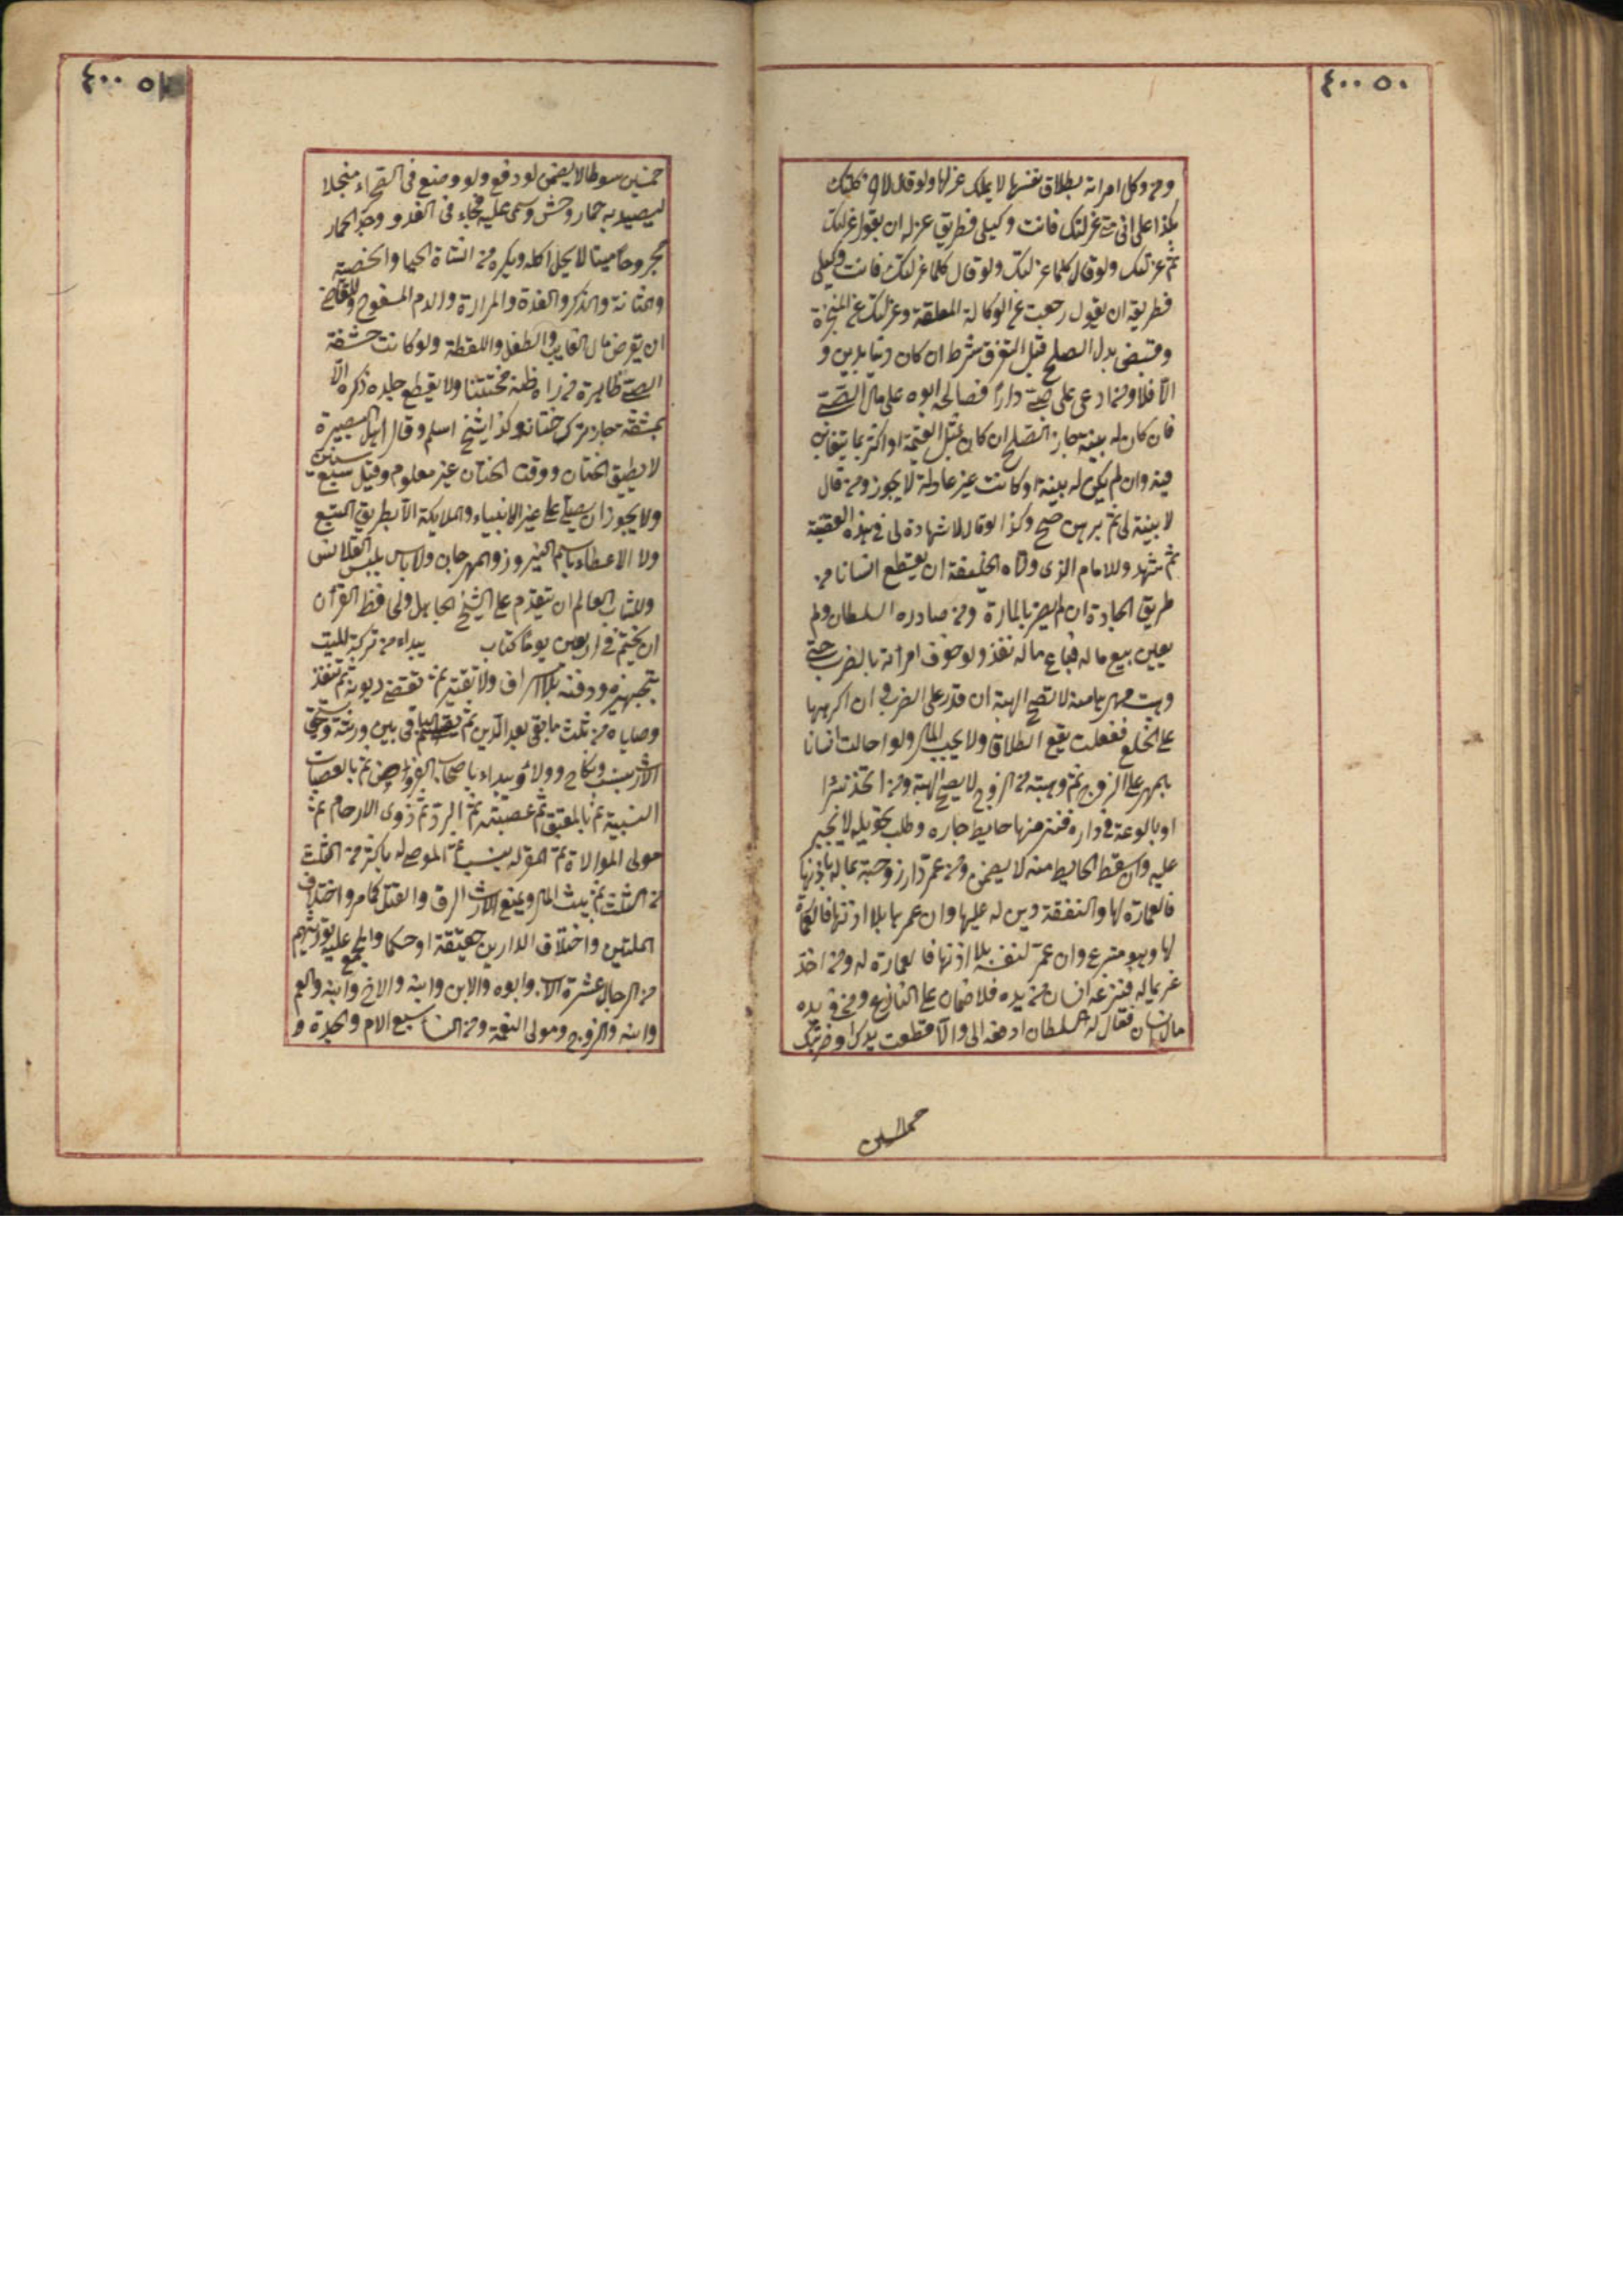 ٤٠٠ ٥٠
ومن وكل امراته بطلاق نفسها لا يملك عزلها ولو قال لاخر وكلتك
بكذا على انى متى عزلتك فانت وكيلى فطريق عزله ان يقول عزلتك
ثم عزلتك ولو قال كلما عزلتك ولو قال كلما عزلتك فانت وكيلى
فطريقه ان يقول رجعت عن الوكالة المعلقة وعزلتك عن المنجزة
وقبض بدل الصلح قبل التفرق شرط ان كان دينا بدين و
الا فلا ومن ادعى على صبى دارا فصالحه ابوه على مال الصبى
فان كان له بينة جاز الصلح ان كان بمثل القيمة او اكثر بما يتغابن
فيه وان لم يكن له بينة او كانت غير عادلة لا يجوز ومن قال
لا بينة لى ثم برهن صح وكذا لو قال لا شهادة لى فى هذه القضية
ثم شهد وللامام الذى ولاه الخليفة ان يقطع انسانا من
طريق الجادة ان لم يضر بالمارة ومن صادره السلطان ولم
يعين بيع ماله فباع ماله نفذ ولو خوف امراته بالضرب حتى
وهبت مهرها منه لا تصح الهبة ان قدر على الضرب وان اكرهها
على الخلع ففعلت يقع الطلاق ولا يجب المال ولو احالت انسانا
بالمهر على الزوج ثم وهبته من الزوج لا يصح الهبة ومن اتخذ بئرا
او بالوعة فى داره فنز منها حايط جاره وطلب تحويله لا يجبر
عليه وان سقط الحايط منه لا يضمن ومن عمر دار زوجته بماله باذنها
فالعمارة لها والنفقة دين له عليها وان عمرها بلا اذنها فالعمارة
لها وهو متبرع وان عمر لنفسه بلا اذنها فالعمارة له ومن اخذ
غريما له فنزعه انسان من يده فلا ضمان على النازع ومن فى يده
مال انسان فقال له السلطان ادفعه الى والا قطعت يدك او ضربتك
خمسين
٤٠٠ ٥١
خمسين سوطا لا يضمن لو دفع ولو وضع فى الصحراء منجلا
ليصيد به حمار وحش وسمى عليه فجاء فى الغد ووجد الحمار
مجروحا ميتا لا يحل اكله ويكره من الشاة الحيا والخصية
والمثانة والذكر والغدة والمرارة والدم المسفوح وللقاضى
ان يقرض مال الغايب والطفل واللقطة ولو كانت حشفة
الصبى ظاهرة من راه ظنه مختتنا ولا يقطع جلدة ذكره الا
بمشقة جاز ترك ختانه وكذا شيخ اسلم وقال اهل البصيرة
لا يطيق الختان ووقت الختان غير معلوم وقيل سبع سنين
ولا يجوز ان يصلى على غير الانبياء والملايكة الا بطريق التبع
ولا الاعطاء باسم النيروز والمهرجان ولا باس بلبس القلانس
وللشاب العالم ان يتقدم على الشيخ الجاهل ولحافظ القران
ان يختم فى اربعين يوما كتاب يبداء من تركة الميت
بتجهيزه ودفنه بلا اسراف ولا تقتير ثم تقضى ديونه ثم تنفذ
وصاياه من ثلث ما بقى بعد الدين ثم يقسم الباقى بين ورثته ويستحق
الارث بنسب ونكاح وولاء ويبداء باصحاب الفروض ثم بالعصبات
النسبية ثم بالمعتق ثم عصبته ثم الرد ثم ذوى الارحام ثم
مولى الموالاة ثم المقر له بنسب ثم الموصى له باكثر من الثلث
من الثلث ثم بيت المال ويمنع الارث الرق والقتل كما مر واختلاف
الملتين واختلاف الدارين حقيقة او حكما والمجمع على توريثهم
من الرجال عشرة الاب وابوه والابن وابنه والاخ وابنه والعم
وابنه والزوج ومولى النعمة ومن النساء سبع الام والجدة و